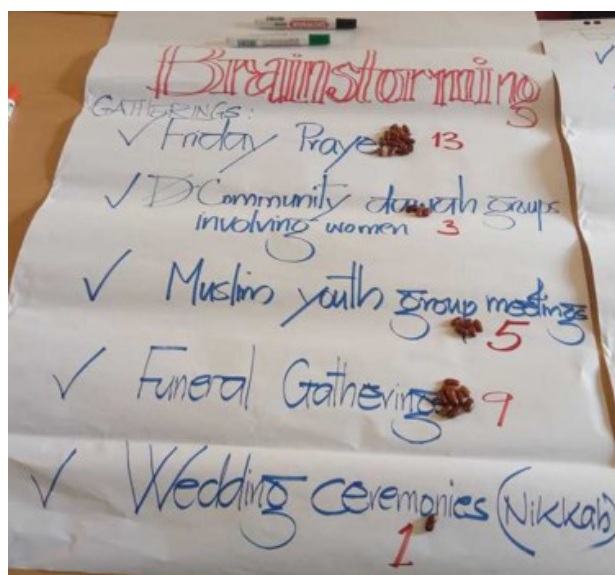 Brainstorming
GATHERINGS:
✓ Friday Praye 13
✓ Community dawah groups
involving women 3
✓ Muslim youth group meetings
5
✓ Funeral Gathering 9
✓ Wedding ceremonies (Nikkah)
1